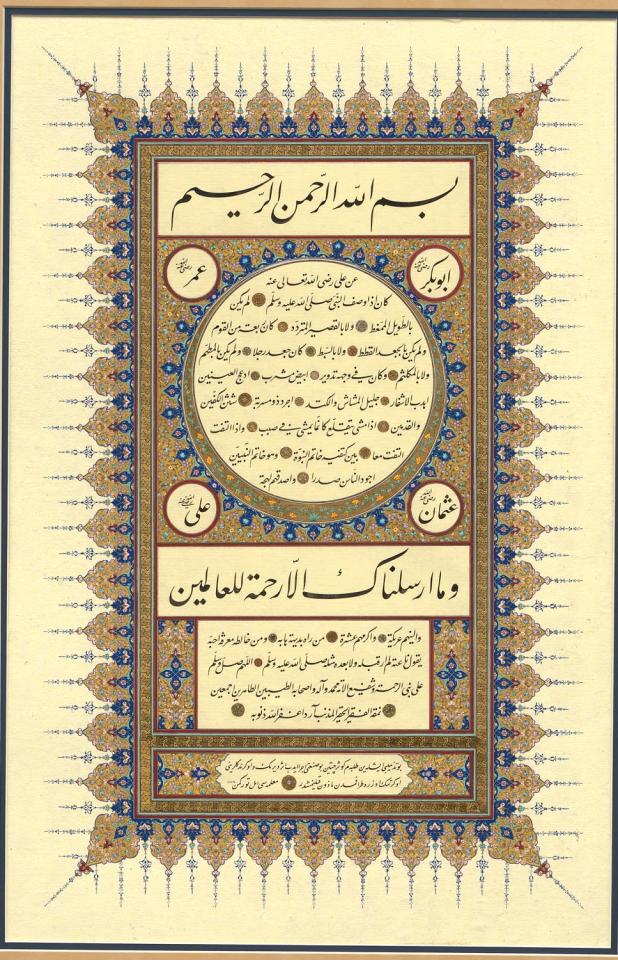 بسم الله الرحمن الرحيم
ابوبكر رضي الله عنه
عمر رضي الله عنه
عن علي رضي الله تعالى عنه
كان اذا وصف النبي صلى الله عليه وسلم لم يكن
بالطويل الممغط ولا بالقصير المتردد كان ربعة من القوم
ولم يكن بالجعد القطط ولا بالسبط كان جعدا رجلا ولم يكن بالمطهم
ولا بالمكلثم وكان في وجهه تدوير ابيض مشرب ادعج العينين
اهدب الاشفار جليل المشاش والكتد اجرد ذو مسربة شثن الكفين
والقدمين اذا مشى تقلع كانما يمشي في صبب واذا التفت
التفت معا بين كتفيه خاتم النبوة وهو خاتم النبيين
اجود الناس صدرا واصدقهم لهجة
عثمان رضي الله عنه
علي رضي الله عنه
وما ارسلناك الا رحمة للعالمين
والينهم عريكة واكرمهم عشرة من راه بديهة هابه ومن خالطه معرفة احبه
يقول ناعته لم ار قبله ولا بعده مثله صلى الله عليه وسلم اللهم صل وسلم
على نبي الرحمة وشفيع الامة محمد وآله واصحابه الطيبين الطاهرين اجمعين
نمقه الفقير الحقير المذنب آرداغ غفر الله ذنوبه